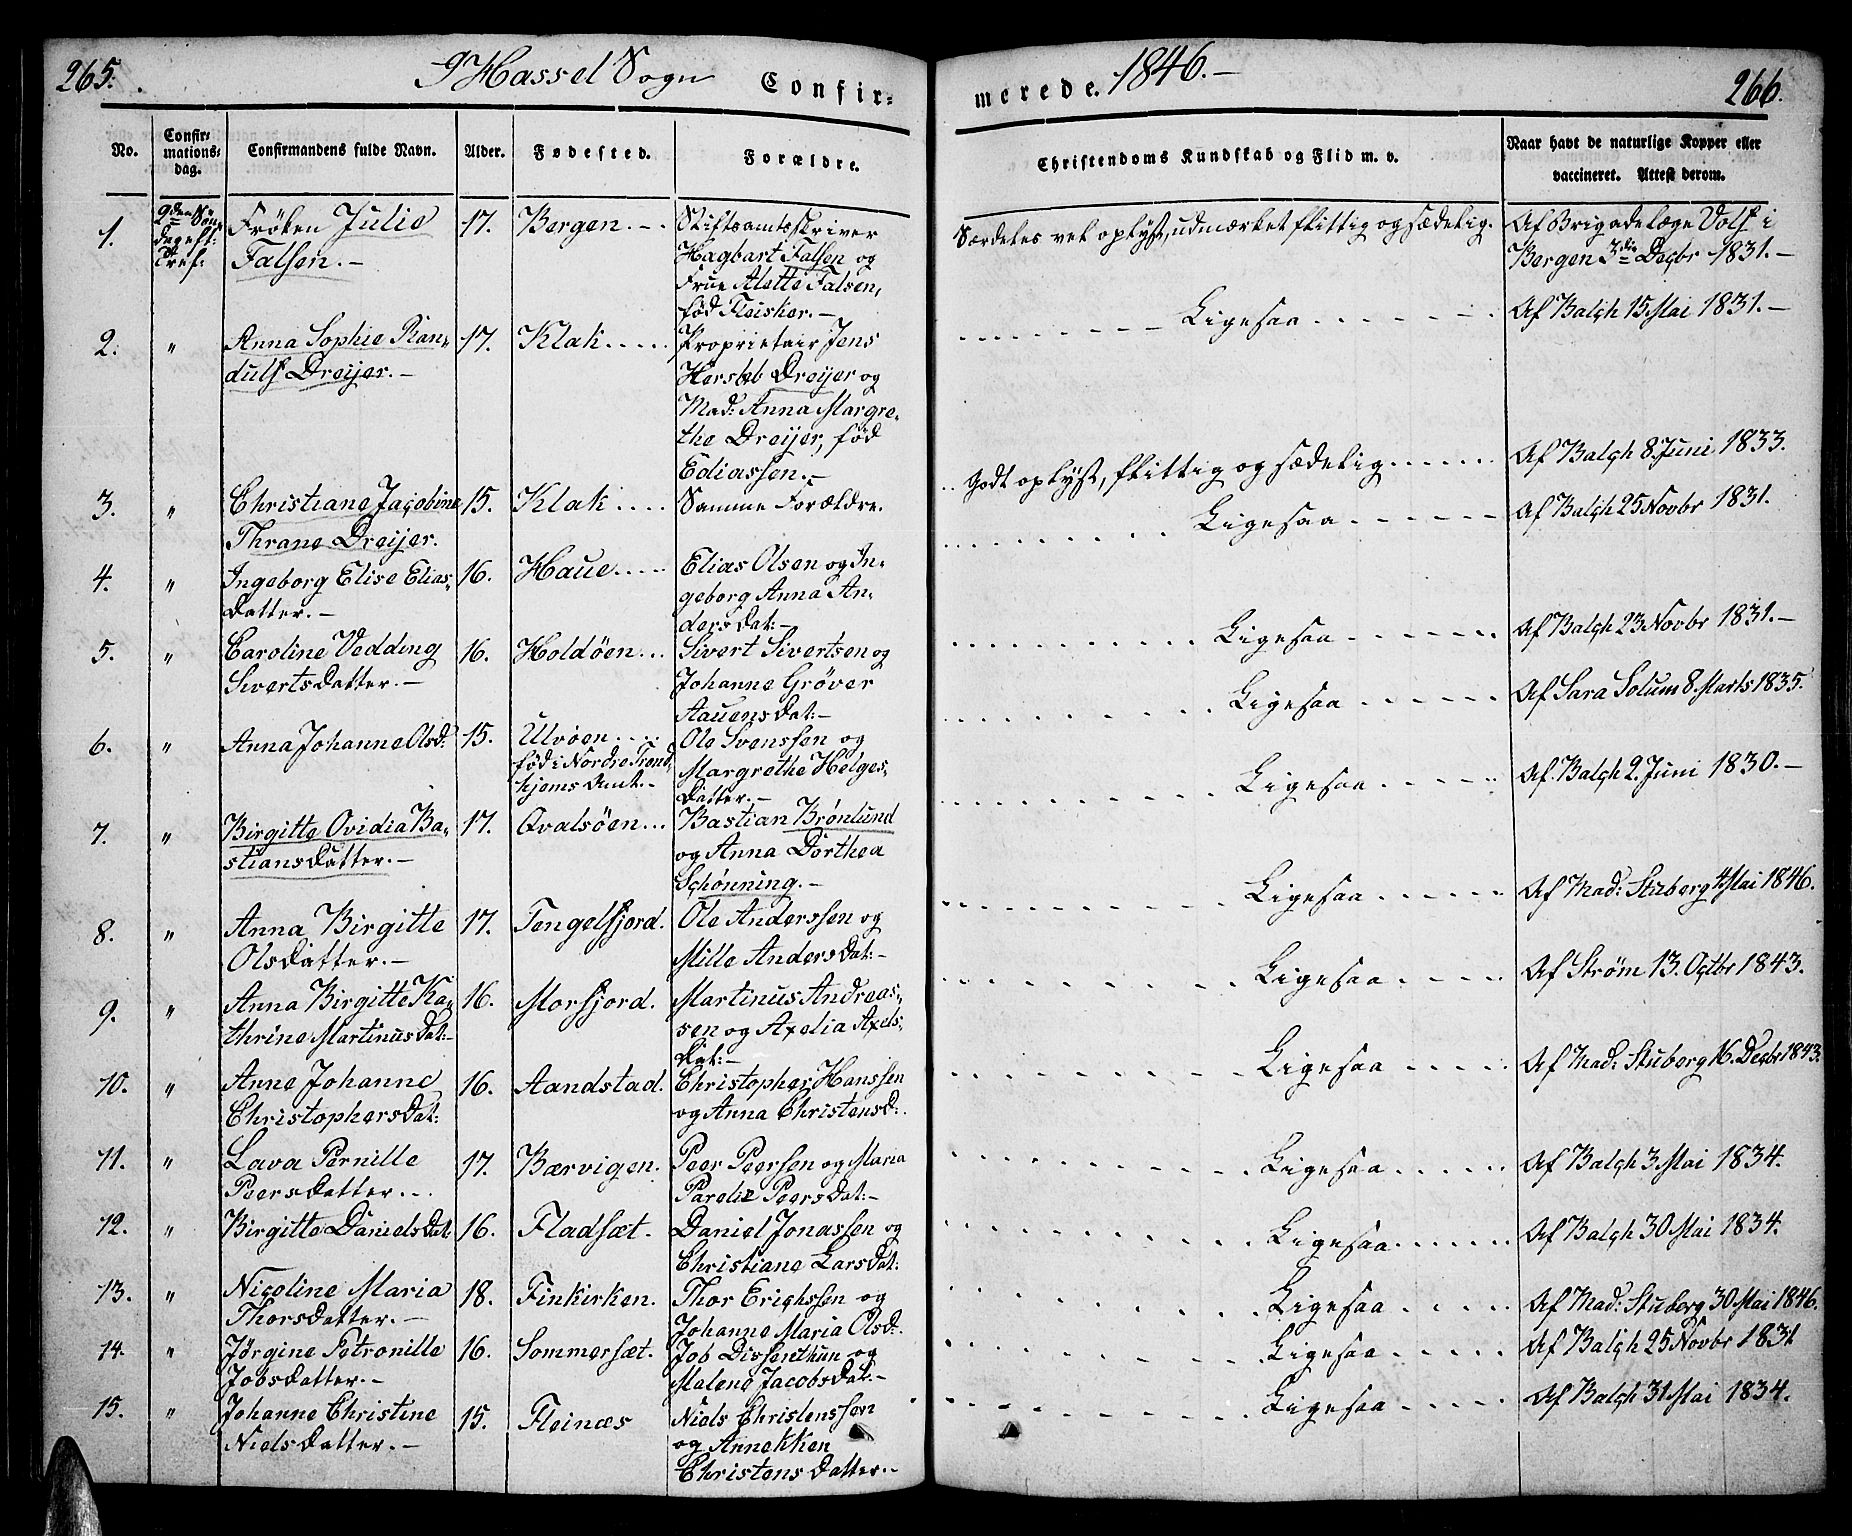 265. I Hassel Sogn Confir-
No. Confirmationsdag. Confirmandens fulde Navn. Alder. Fødested. Forældre.
1. 2den Søndag eft: Tref: Frøken Julie 17. Bergen. Stiftsamtsskriver
Falsen. Hagbart Falsen og
Frue Alette Falsen,
fød Fleischer.
2. " Anna Sophie Ran- 17. Klak Proprietair Jens
dulf Dreijer. Hersleb Dreijer og
Mad: Anna Margre-
the Dreijer, fød
Ediassen.
3. " Christiane Jacobine 15. Klak Samme Forældre.
Thrane Dreijer.
4. " Ingeborg Elise Elias- 16. Haue Elias Olsen og In-
datter. geborg Anna An-
dersdat:
5. " Caroline Vedding 16. Holdøen Sivert Sivertsen og
Sivertsdatter. Johanne Grøver
Aauensdat:
6. " Anna Johanne Olsd: 15. Ulvøen Ole Svenssen og
fød i Nordre Trond- Margrethe Helges-
hjems Amt. datter.
7. " Birgitte Ovidia Ba- 17. Qvalsöen Bastian Brønlund
stiansdatter. og Anna Dorthea
Schønning.
8. " Anna Birgitte 17. Tengelfjord. Ole Anderssen og
Olsdatter. Mille Andersdat:
9. " Anna Birgitte Ka- 16. Morfjord. Martinus Andreas-
thrine Martinusdat: sen og Axelia Axels-
dat:
10. " Anne Johanne 16. Aandstad. Christopher Hanssen
Christophersdat: og Anna Christensd:
11. " Lava Pernille 17. Bærvigen. Peer Peersen og Maria
Peersdatter. Parelie Peersdat:
12. " Birgitte Danielsdat: 16. Fladsæt. Daniel Jonassen og
Christiane Larsdat:
13. " Nicoline Maria 18. Finkirken. Thor Erichssen og
Thorsdatter. Johanne Maria Olsd:
14. " Jörgine Petronille 16. Sommersæt. Job Dissenthun og
Jobsdatter. Malene Jacobsdat:
15. " Johanne Christine 15. Fleinæs Niels Christenssen
Nielsdatter. og Annekken
Christensdatter.
merede. 1846. 266.
Christendoms Kundskab og Flid m. v. Naar havt de naturlige Kopper eller
vaccineret. Attest derom.
Særdeles vel oplyst, udmærket flittig og sædelig. Af Brigadelæge Volf i
Bergen 3die Decbr 1831.
Ligesaa Af Balch 15 Mai 1831.
Godt oplyst, flittig og sædelig Af Balch 8. Juni 1833.
Ligesaa Af Balch 25 Novbr 1831.
Ligesaa Af Balch 23 Novbr 1831.
Ligesaa Af Sara Solum 8. Marts 1835.
Ligesaa Af Balch 2. Juni 1830.
Ligesaa Af Mad: Stuberg 4 Mai 1846.
Ligesaa Af Strøm 13. Octbr 1843.
Ligesaa Af Mad: Stuberg 16. Decbr 1843.
Ligesaa Af Balch 3 Mai 1834.
Ligesaa Af Balch 30 Mai 1834.
Ligesaa Af Mad: Stuberg 30 Mai 1846.
Ligesaa Af Balch 25 Novbr 1831
Ligesaa Af Balch 31 Mai 1834.